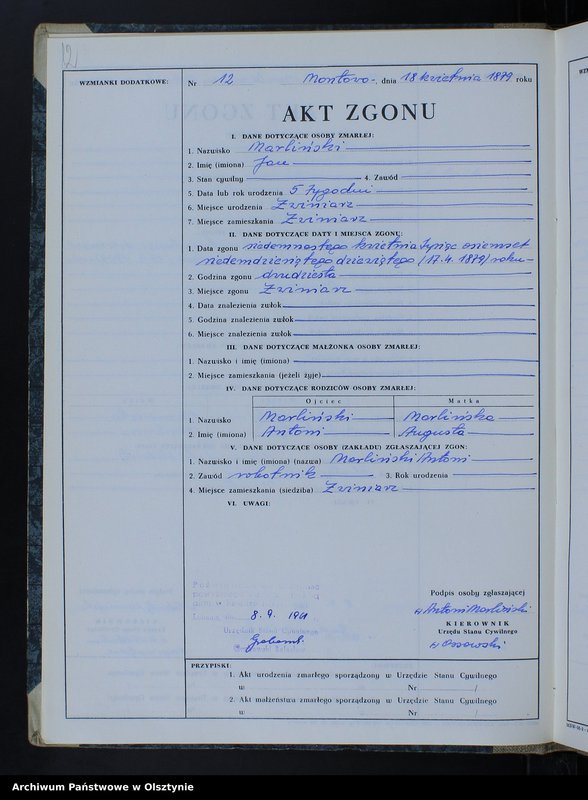 12
WZMIANKI DODATKOWE:
Nr 12 Montowo, dnia 18 kwietnia 1879 roku
AKT ZGONU
I. DANE DOTYCZĄCE OSOBY ZMARŁEJ:
1. Nazwisko Marliński
2. Imię (imiona) Jan
3. Stan cywilny 4. Zawód
5. Data lub rok urodzenia 5 tygodni
6. Miejsce urodzenia Zwiniarz
7. Miejsce zamieszkania Zwiniarz
II. DANE DOTYCZĄCE DATY I MIEJSCA ZGONU:
1. Data zgonu siedemnastego kwietnia tysiąc osiemset
siedemdziesiątego dziewiątego (17.4.1879) roku
2. Godzina zgonu dwudziesta
3. Miejsce zgonu Zwiniarz
4. Data znalezienia zwłok
5. Godzina znalezienia zwłok
6. Miejsce znalezienia zwłok
III. DANE DOTYCZĄCE MAŁŻONKA OSOBY ZMARŁEJ:
1. Nazwisko i imię (imiona)
2. Miejsce zamieszkania (jeżeli żyje)
IV. DANE DOTYCZĄCE RODZICÓW OSOBY ZMARŁEJ:
Ojciec Matka
1. Nazwisko Marliński Marlińska
2. Imię (imiona) Antoni Augusta
V. DANE DOTYCZĄCE OSOBY (ZAKŁADU) ZGŁASZAJĄCEJ ZGON:
1. Nazwisko i imię (imiona) (nazwa) Marliński Antoni
2. Zawód robotnik 3. Rok urodzenia
4. Miejsce zamieszkania (siedziba) Zwiniarz
VI. UWAGI:
8.9. 1961
Urzędu Stanu Cywilnego
Podpis osoby zgłaszającej
Antoni Marliński
KIEROWNIK
Urzędu Stanu Cywilnego
Ossowski
PRZYPISKI:
1. Akt urodzenia zmarłego sporządzony w Urzędzie Stanu Cywilnego
w Nr /
2. Akt małżeństwa zmarłego sporządzony w Urzędzie Stanu Cywilnego
w Nr /
Archiwum Państwowe w Olsztynie